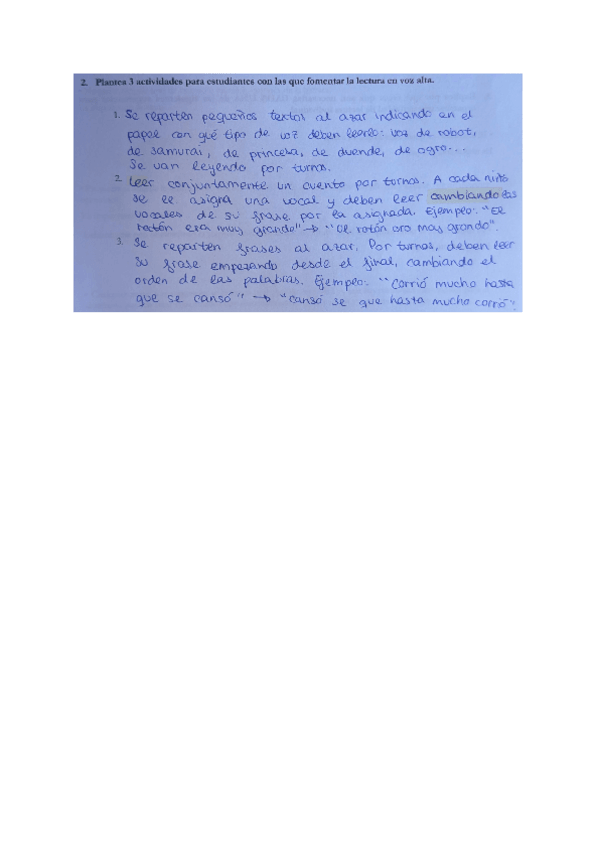 2. Plantea 3 actividades para estudiantes con las que fomentar la lectura en voz alta.
1. Se reparten pequeños textos al azar indicando en el
papel con qué tipo de voz deben leerlo: voz de robot,
de samurai, de princesa, de duende, de ogro...
Se van leyendo por turnos.
2. Leer conjuntamente un cuento por turnos. A cada niño
se le asigna una vocal y deben leer cambiando las
vocales de su frase por la asignada. Ejemplo: "El
ratón era muy grande" → "Ol rotón oro moy grondo".
3. Se reparten frases al azar. Por turnos, deben leer
su frase empezando desde el final, cambiando el
orden de las palabras. Ejemplo: "Corrió mucho hasta
que se cansó" → "Cansó se que hasta mucho corrió".